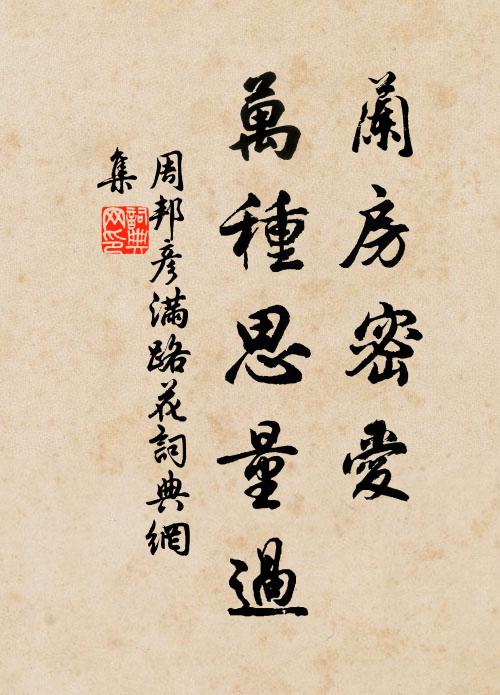 蘭房密愛
萬種思量過
周邦彥滿路花詞典網
集
詞典
网印